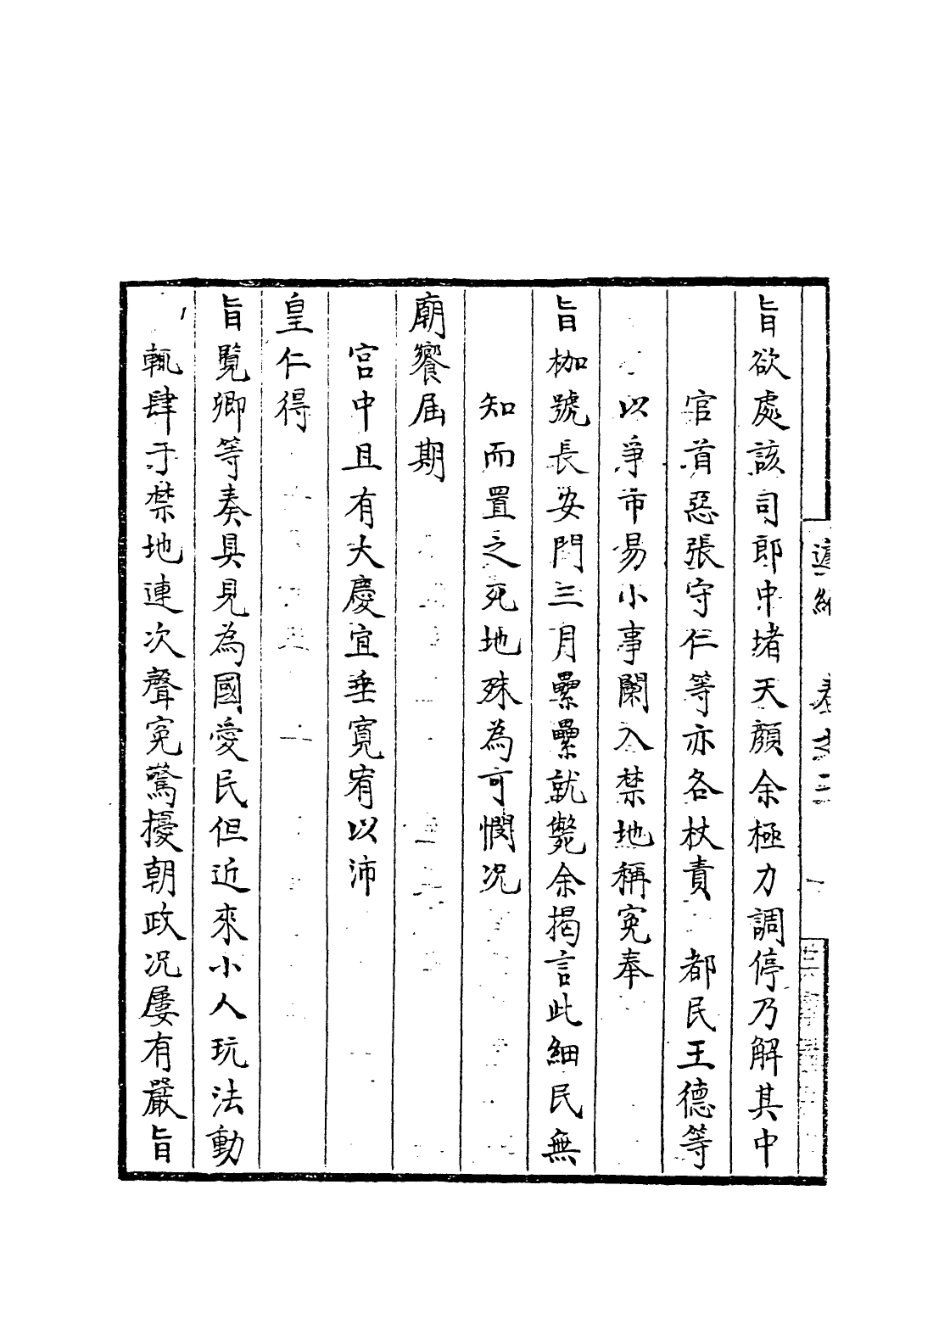 旨欲處該司郎中堵天顏余極力調停乃解其中
官首惡張守仁等亦各杖責　都民王德等
以爭市易小事闌入禁地稱寃奉
旨枷號長安門三月纍纍就斃余揭言此細民無
知而置之死地殊為可憫况
廟饗屆期
宮中且有大慶宜垂寬宥以沛
皇仁得
旨覽卿等奏具見為國愛民但近來小人玩法動
輒肆于禁地連次聲寃驚擾朝政况屢有嚴旨